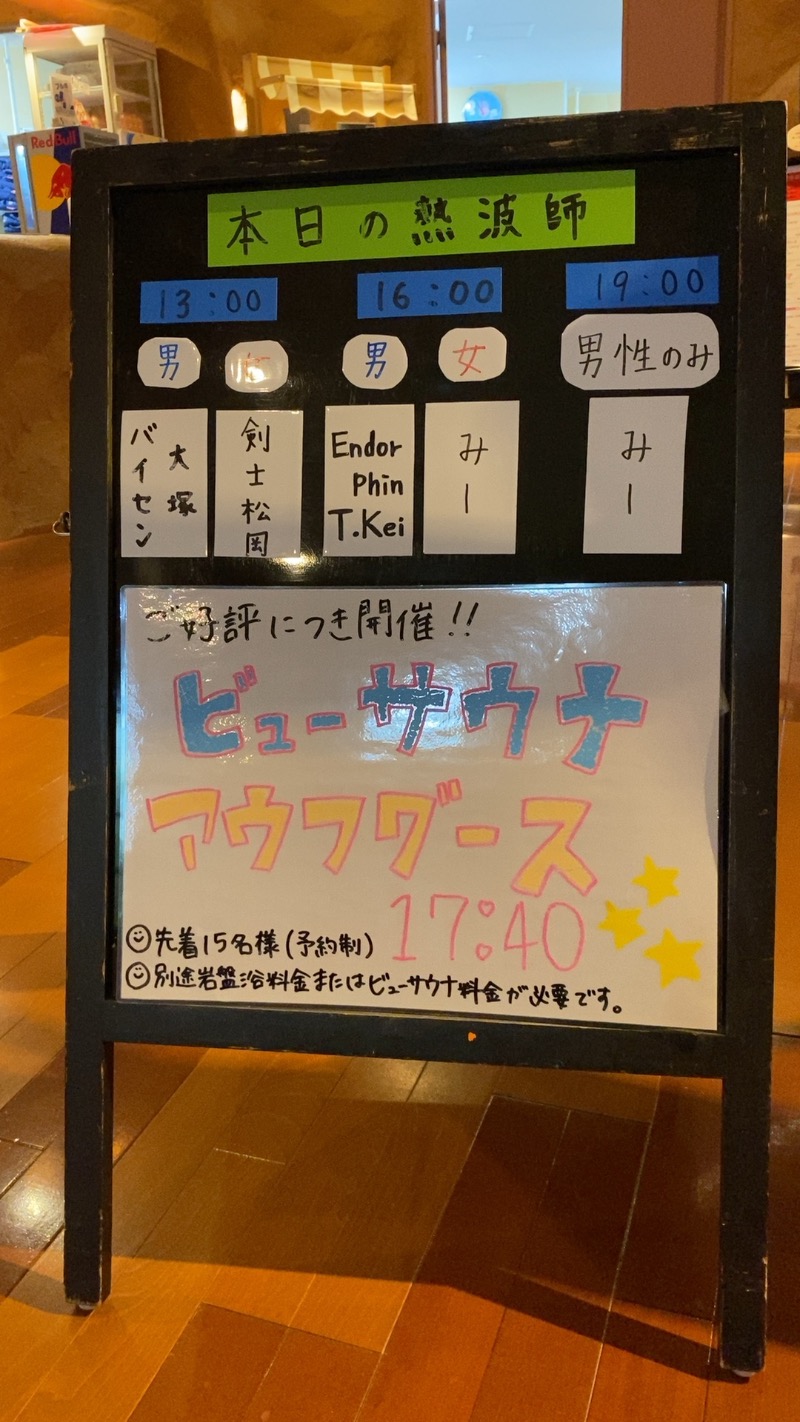 RedBull
本日の熱波師
13:00
16:00
19:00
男
女
男
女
男性のみ
大塚
バイセン
剣士松岡
Endor
Phin
T.Kei
みー
みー
ご好評につき開催!!
ビューサウナ
アウフグース
17:40
先着15名様(予約制)
別途岩盤浴料金またはビューサウナ料金が必要です。